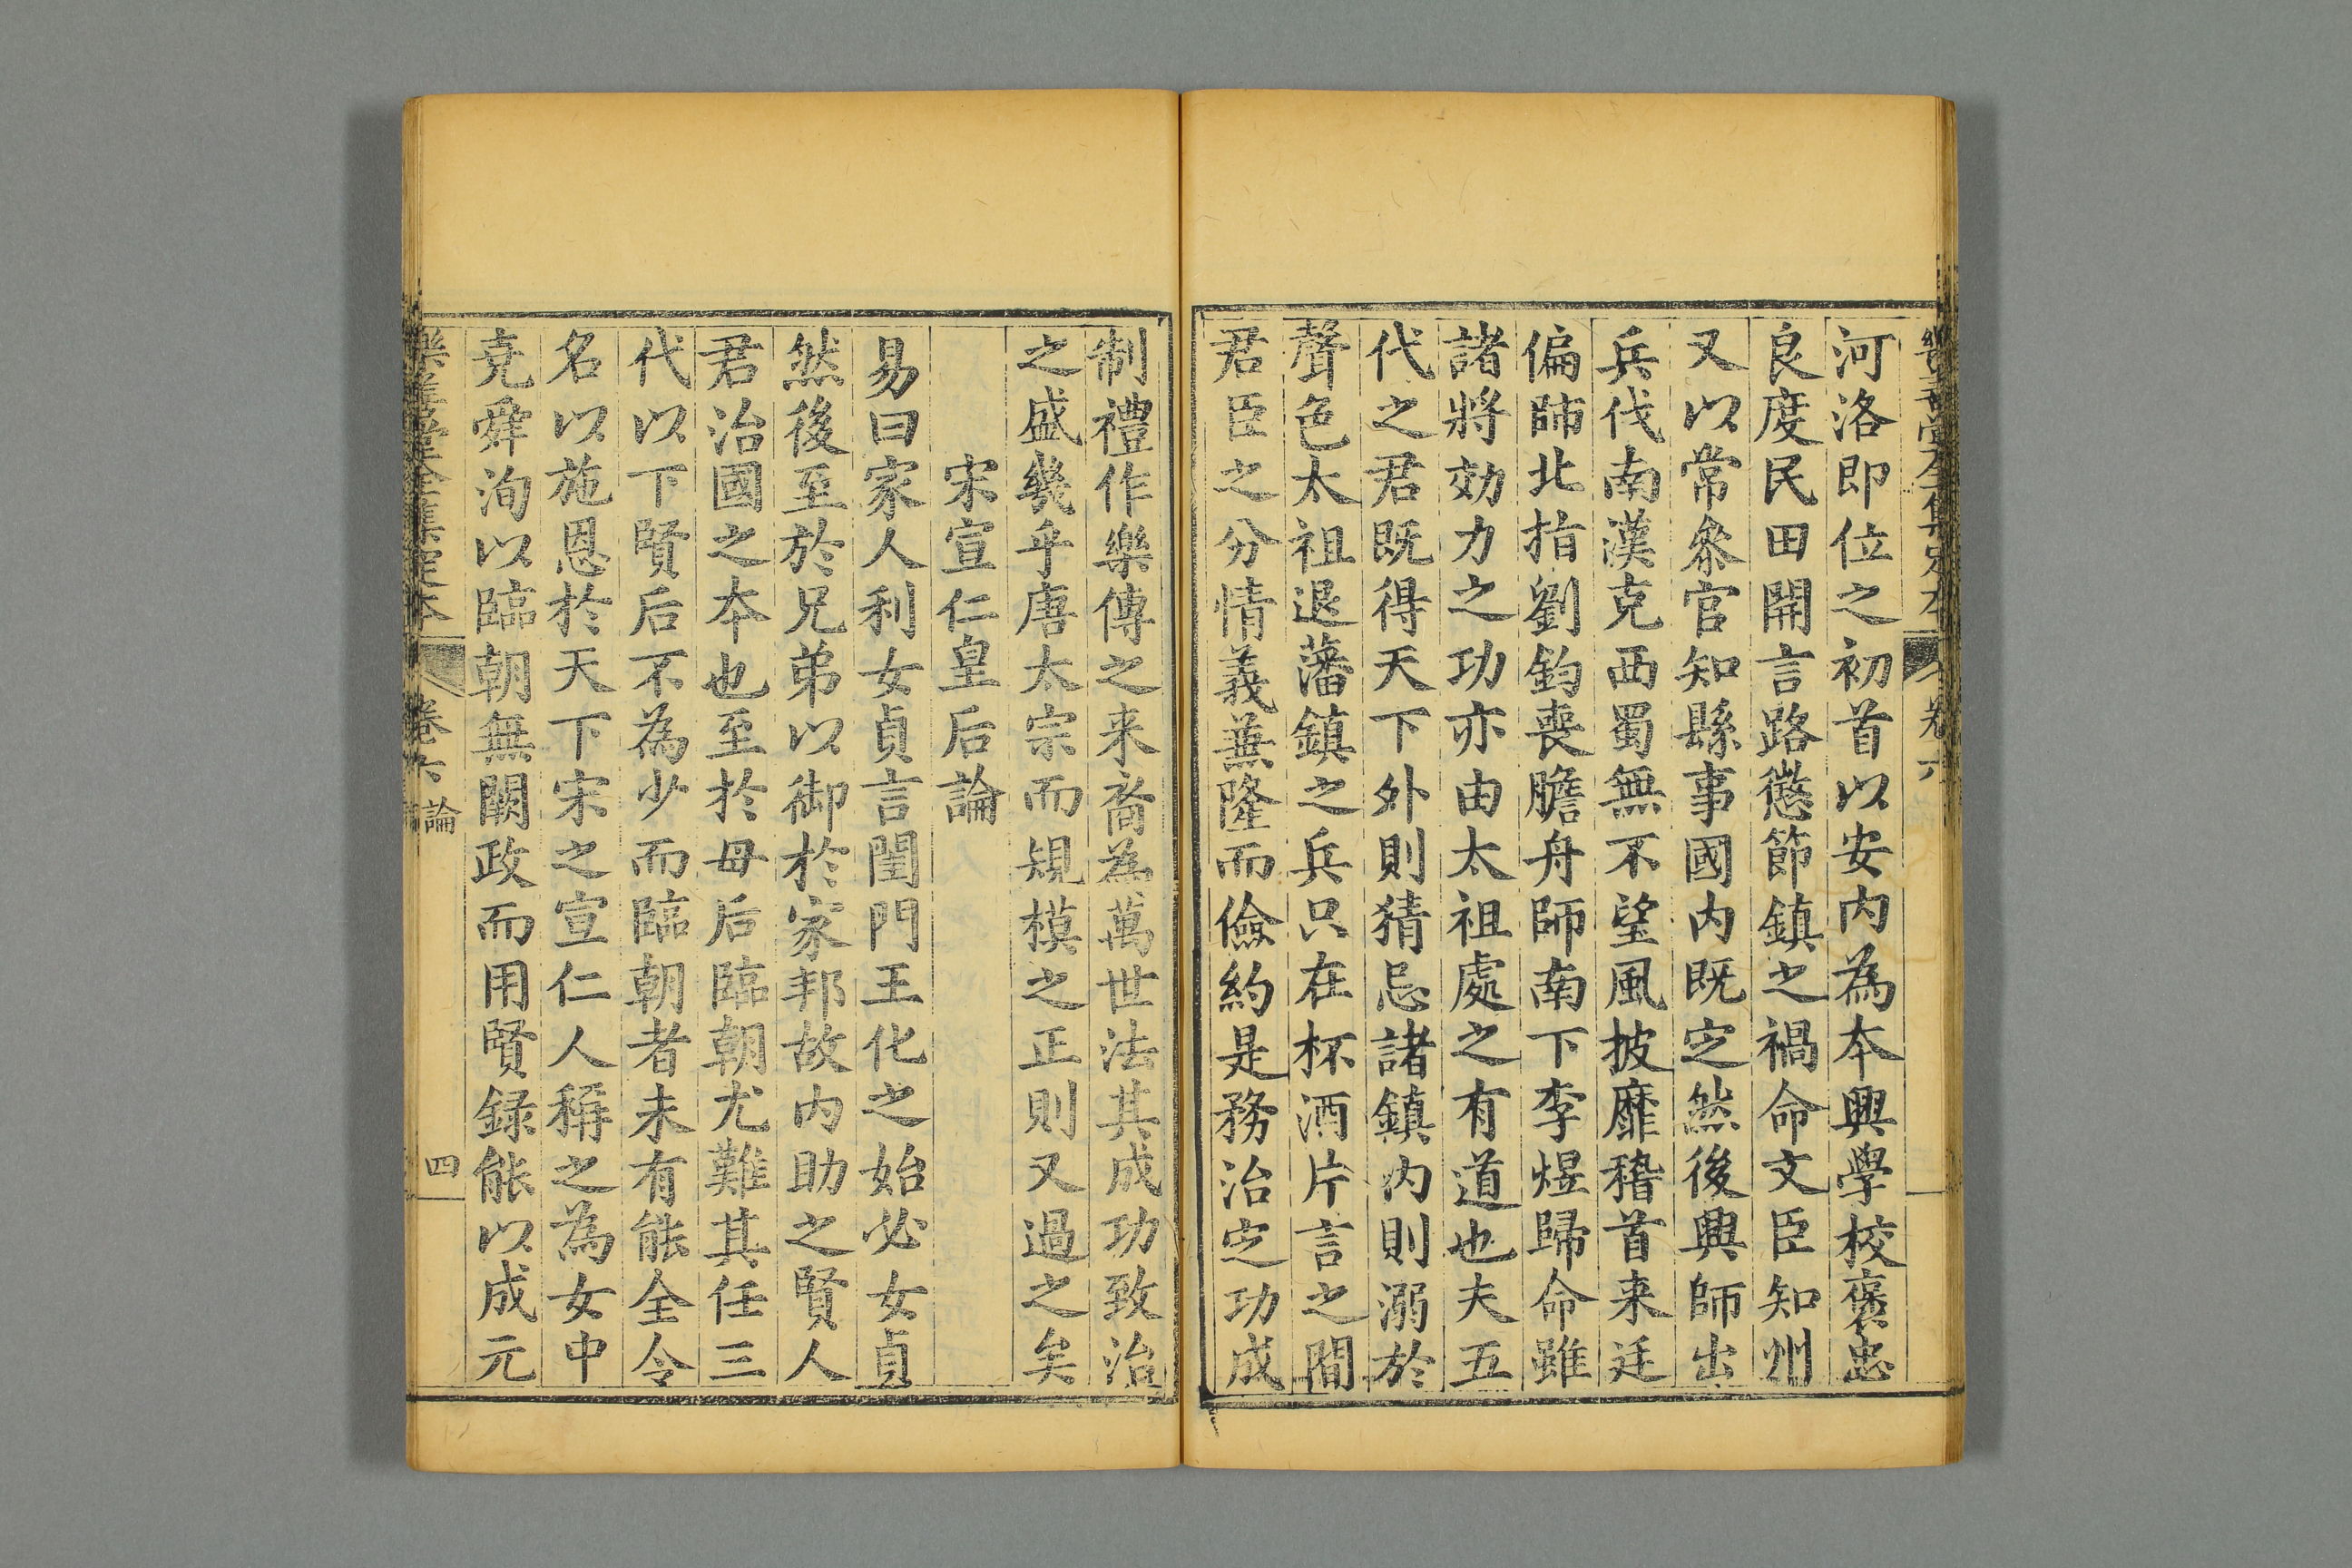 樂善堂全集定本
卷六
河洛即位之初首以安内為本興學校褒忠
良度民田開言路懲節鎮之禍命文臣知州
又以常叅官知縣事國内既定然後興師出
兵伐南漢克西蜀無不望風披靡稽首来廷
偏師北指劉鈞喪膽舟師南下李煜歸命雖
諸將効力之功亦由太祖處之有道也夫五
代之君既得天下外則猜忌諸鎮内則溺於
聲色太祖退藩鎮之兵只在杯酒片言之間
君臣之分情義兼隆而儉約是務治定功成
制禮作樂傳之来裔為萬世法其成功致治
之盛幾乎唐太宗而規模之正則又過之矣
宋宣仁皇后論
易曰家人利女貞言閨門王化之始必女貞
然後至於兄弟以御於家邦故内助之賢人
君治國之本也至於母后臨朝尤難其任三
代以下賢后不為少而臨朝者未有能全令
名以施恩於天下宋之宣仁人稱之為女中
堯舜洵以臨朝無闕政而用賢録能以成元
樂善堂全集定本
卷六
論
四